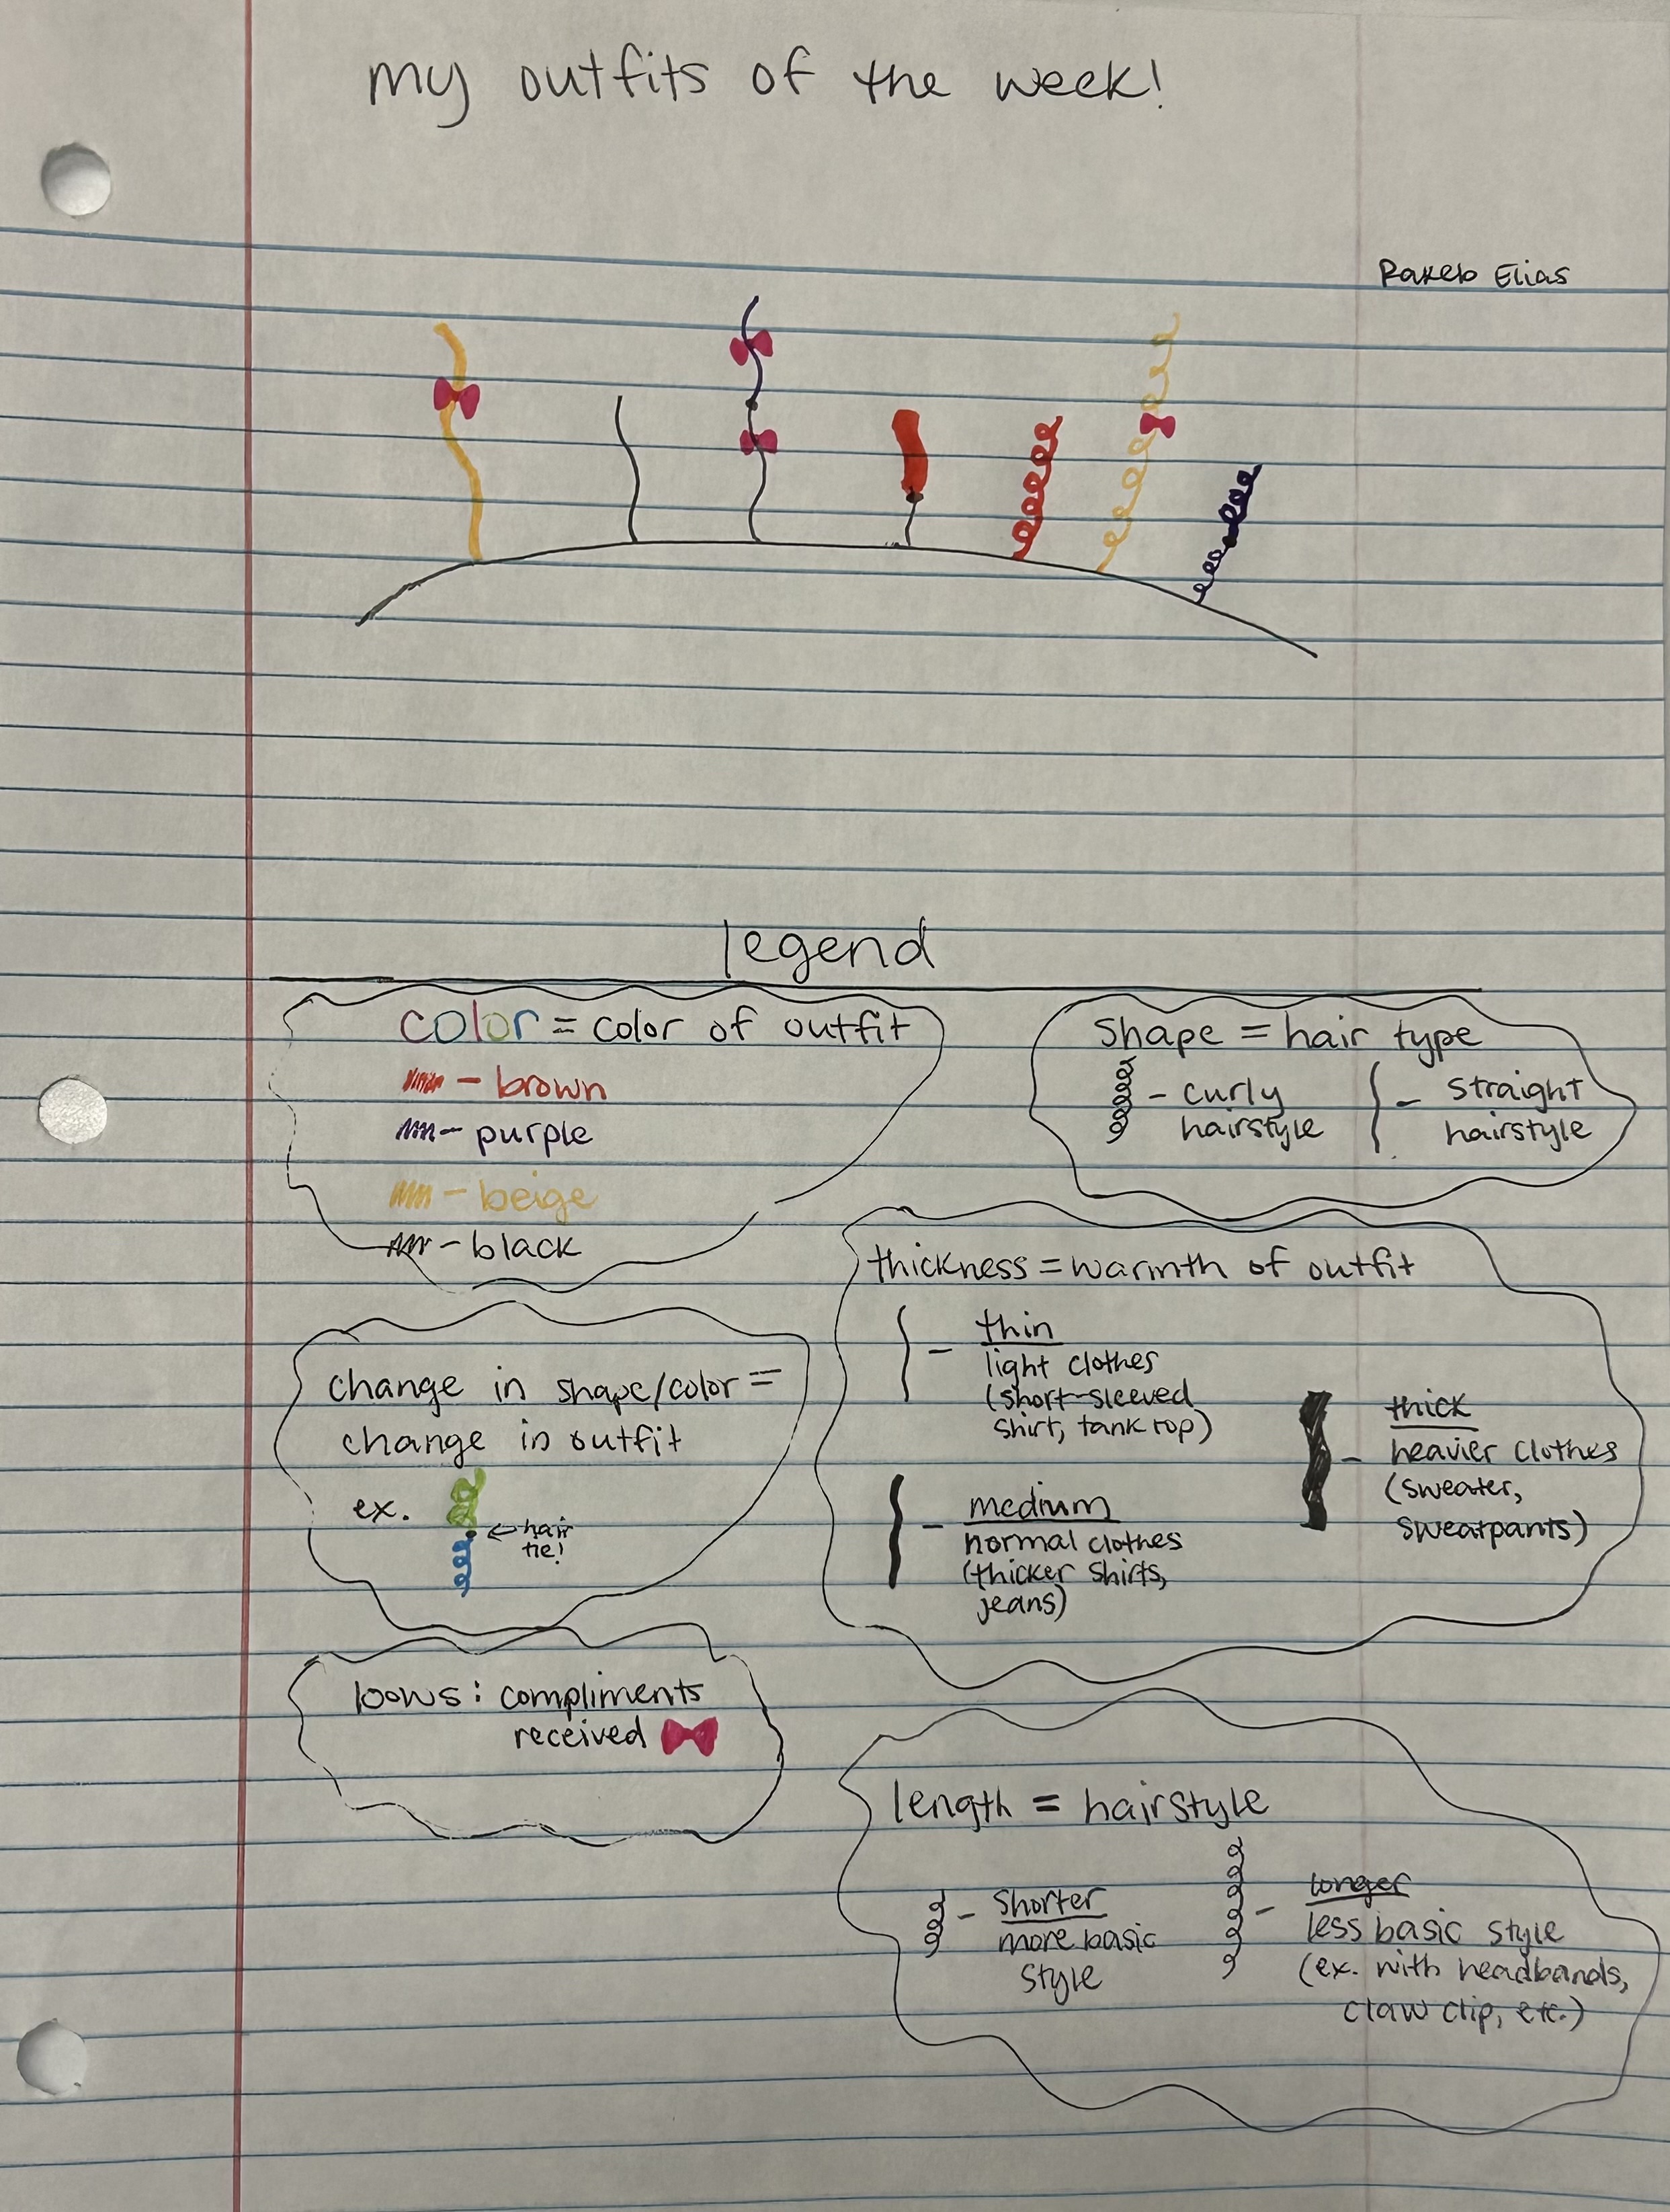 my outfits of the week!
Elias
legend
color = color of outfit
- brown
- purple
- beige
- black
shape = hair type
- curly
hairstyle
- straight
hairstyle
thickness = warmth of outfit
- thin
light clothes
(short-sleeved
shirt, tank top)
- medium
normal clothes
(thicker shirts,
jeans)
- thick
heavier clothes
(sweater,
sweatpants)
change in shape/color =
change in outfit
ex.
← hair
tie!
bows: compliments
received
length = hairstyle
- shorter
more basic
style
- longer
less basic style
(ex. with headbands,
claw clip, etc.)